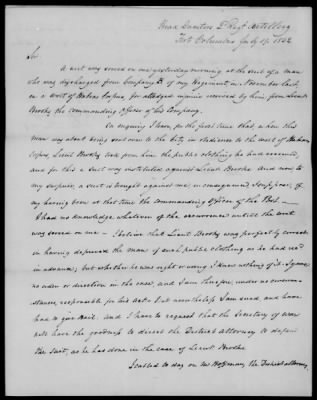 Head Quarters 2d Regt Artillery
Fort Columbus July 19. 1842
Sir,
A writ was served on me yesterday morning at the suit of a man
who was discharged from Company of my Regiment in November last,
on a writ of Habeas Corpus, for alledged injuries received by him from Lieut
Brooke, the commanding officer of his Company.
On enquiry I learn, for the first time that when this
man was about being sent over to the City, in obedience to the writ of Habeas
Corpus, Lieut Brooke took from him the public clothing he had received,
and for this a suit was instituted against Lieut Brooke. And now to
my surprise, a suit is brought against me, in consequence, I suppose, of
my having been at that time the commanding officer of the Post. —
I had no knowledge whatever of the occurrence until the writ
was served on me — I believe that Lieut Brooke was perfectly correct
in having deprived the man of such public clothing as he had rec'd
in advance; but whether he was right or wrong I knew nothing of it. I gave
no order or direction in the case, and I am therefore, under no circum-
stances, responsible for his acts. But nevertheless I am sued, and have
had to give bail. And I have to request that the Secretary of war
will have the goodness to direct the District attorney to defend
the suit, as he has done in the case of Lieut Brooke
I called to day on Mr Hoffman, the District attorney,